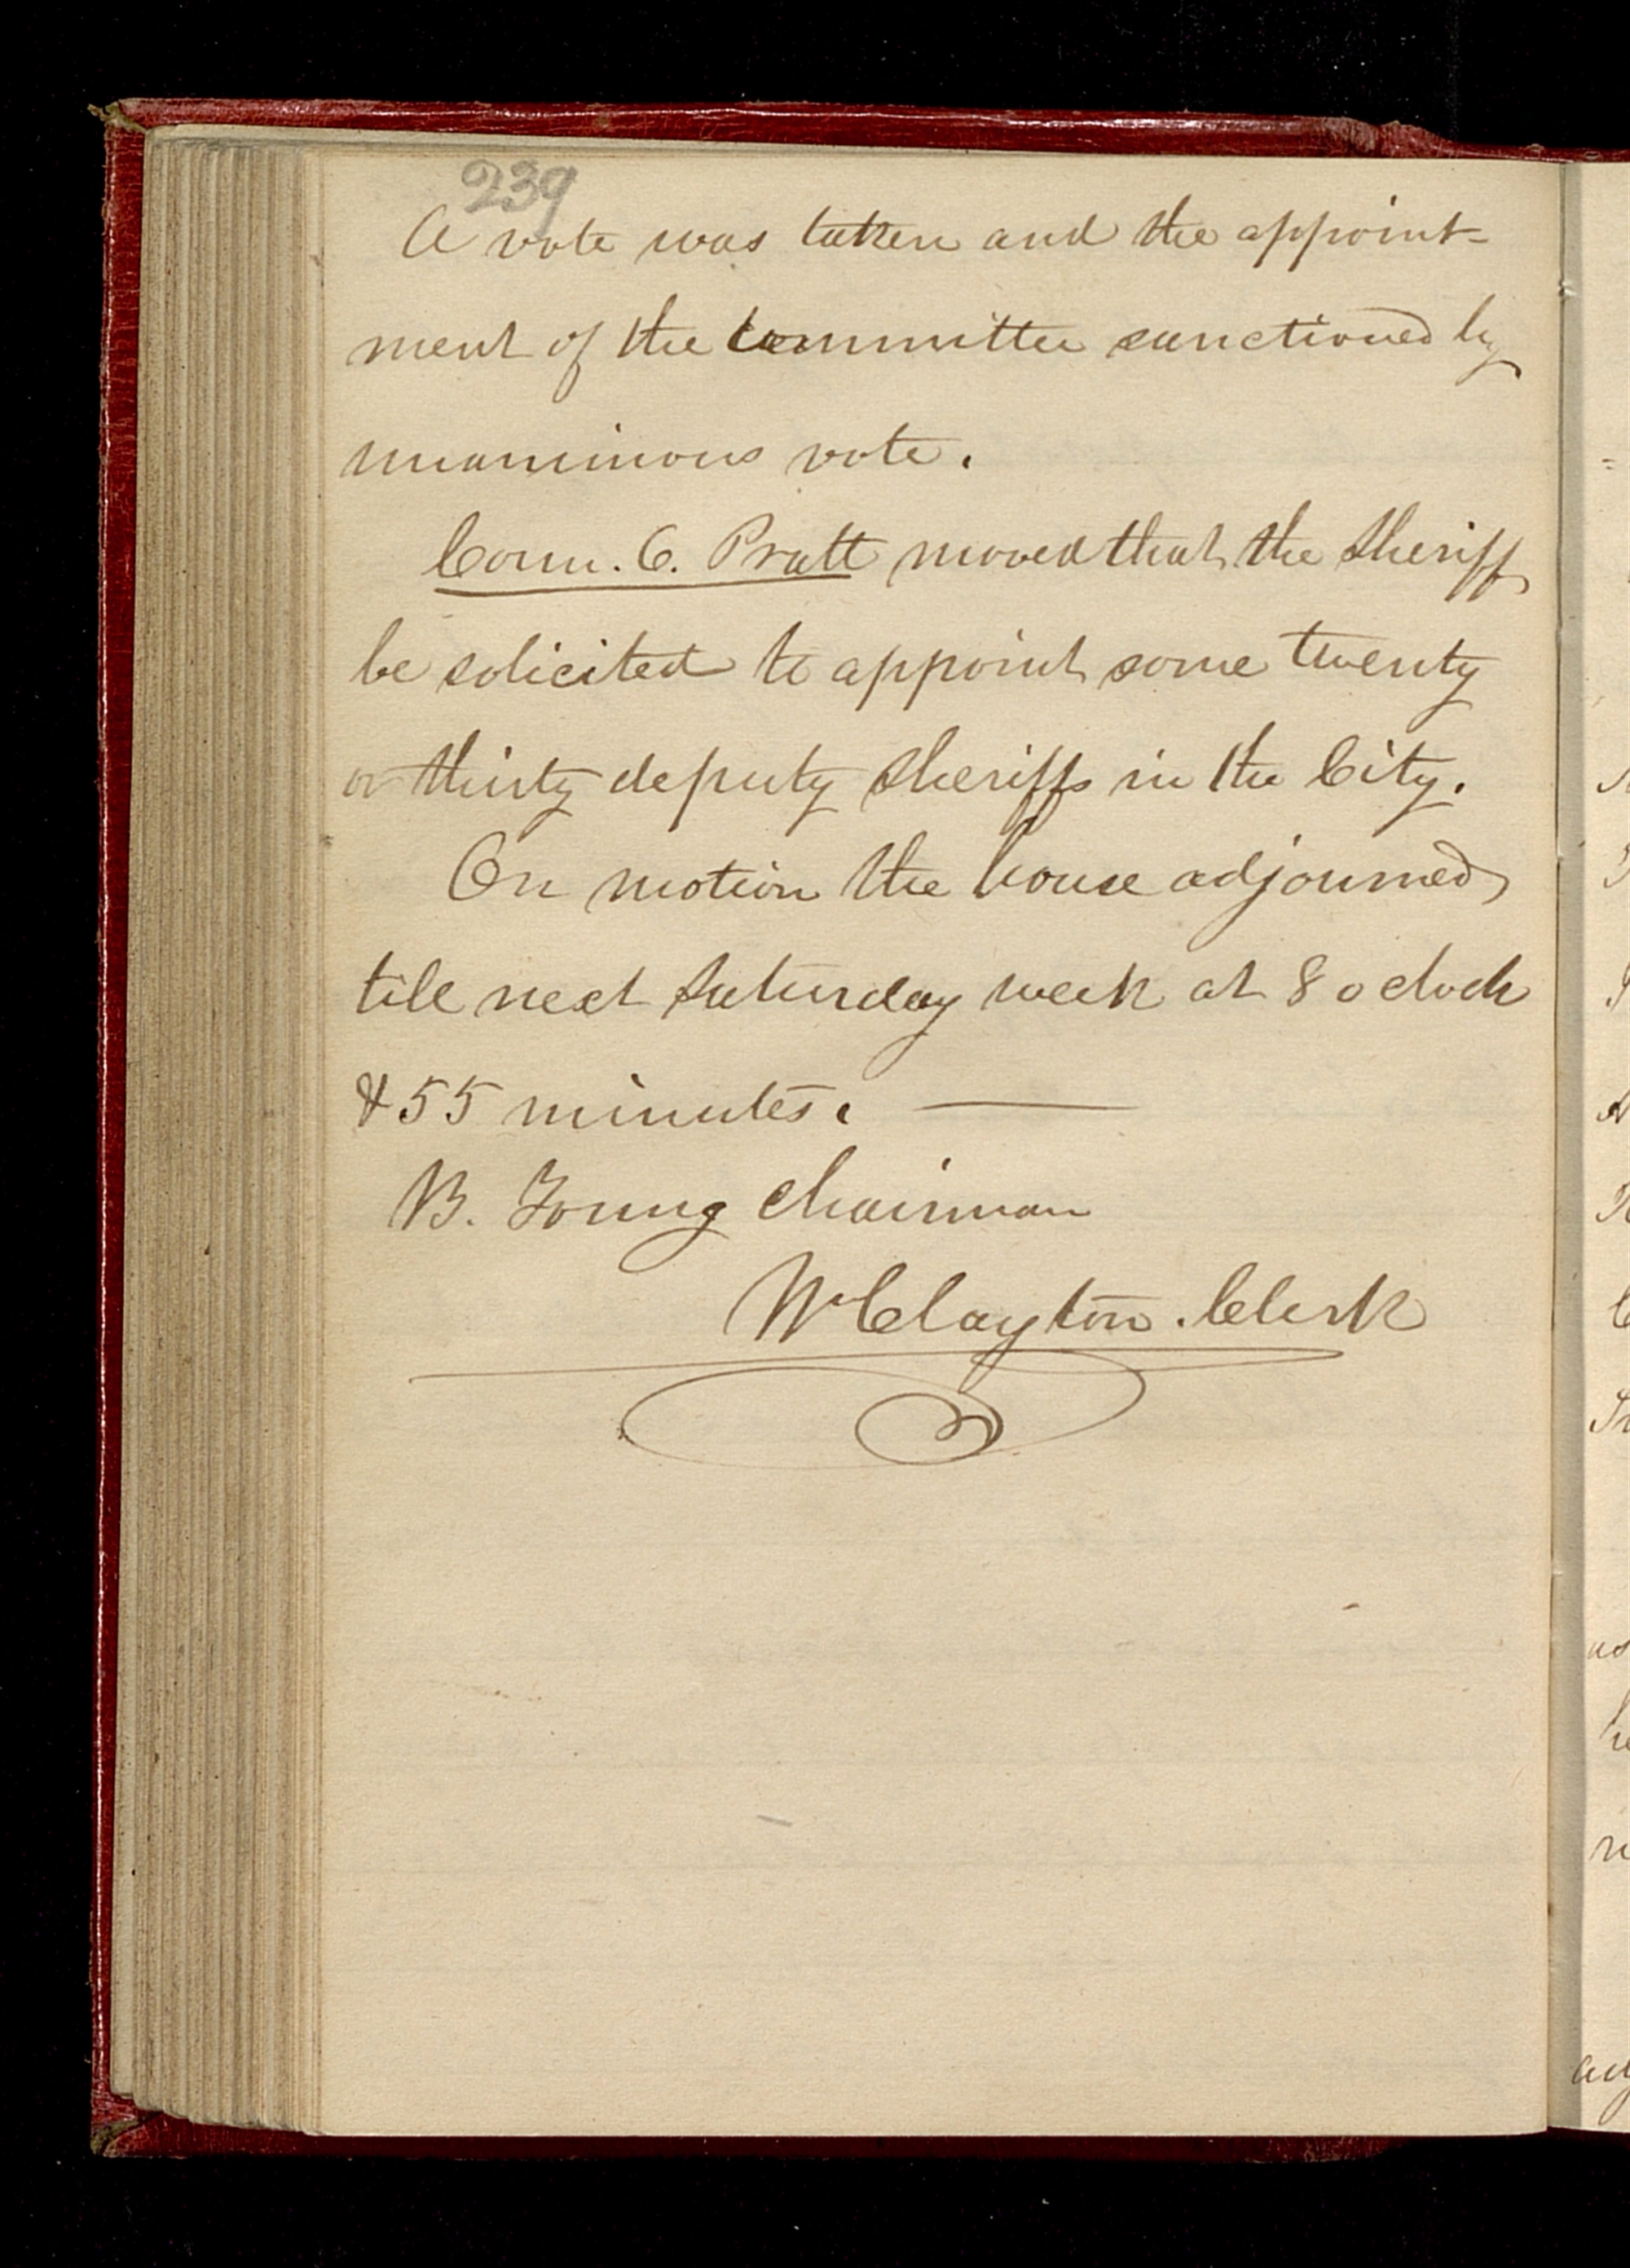 239
A vote was taken and the appoint-
ment of the committee sanctioned by
unanimous vote.
Coun. O. Pratt moved that the Sheriff
be solicited to appoint some twenty
or thirty deputy sheriffs in the City.
On motion the house adjourned
till next Saturday week at 8 o clock
& 55 minutes.
B. Young Chairman
Wm Clayton. Clerk